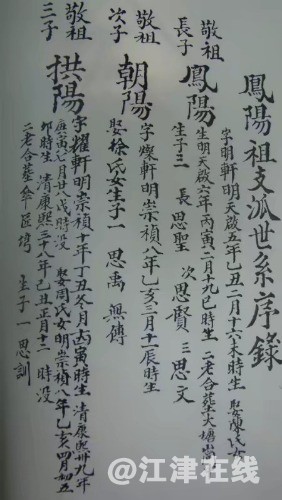 鳳陽祖支派世系序錄
敬祖
長子
鳳陽
字明軒明天啟五年乙丑二月十六未時生 娶陳氏女
生明天啟六年丙寅二月十九巳時生 二老合葬大塘
生子三 長思聖 次思賢 三思文
敬祖
次子
朝陽
字燦軒明崇禎八年乙亥三月十一辰時生
娶徐氏女生子一 思禹 無傳
敬祖
三子
拱陽
字耀軒明崇禎十年丁丑冬月寅時生 清康熙卅九年
庚寅七月廿八戌時没 娶周氏女明崇禎八年乙亥四月初五
卯時生 清康熙三十八年己丑正月十二 時没
二老合葬傘匠塆 生子一思訓
@江津在线